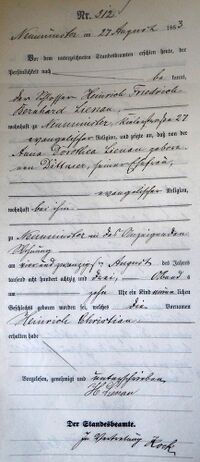 Nr. 212
Neumünster am 27 August 1883
Vor dem unterzeichneten Standesbeamten erschien heute, der
Persönlichkeit nach
be kannt,
der Schlosser Heinrich Friedrich
Bernhard Lienau
wohnhaft zu Neumünster, 27
evangelischer Religion, und zeigte an, daß von der
Anna Dorothea Lienau geborene
seiner Ehefrau,
evangelischer Religion,
wohnhaft bei ihm
zu Neumünster in des Anzeigenden
Wohnung
am vierundzwanzigsten August des Jahres
tausend acht hundert achtzig und drei, Abends
um zehn Uhr ein Kind männlichen
Geschlechts geboren worden sei, welches die Vornamen
Heinrich Christian
erhalten habe
Vorgelesen, genehmigt und unterschrieben
H. Lienau
Der Standesbeamte.
In Vertretung Koch